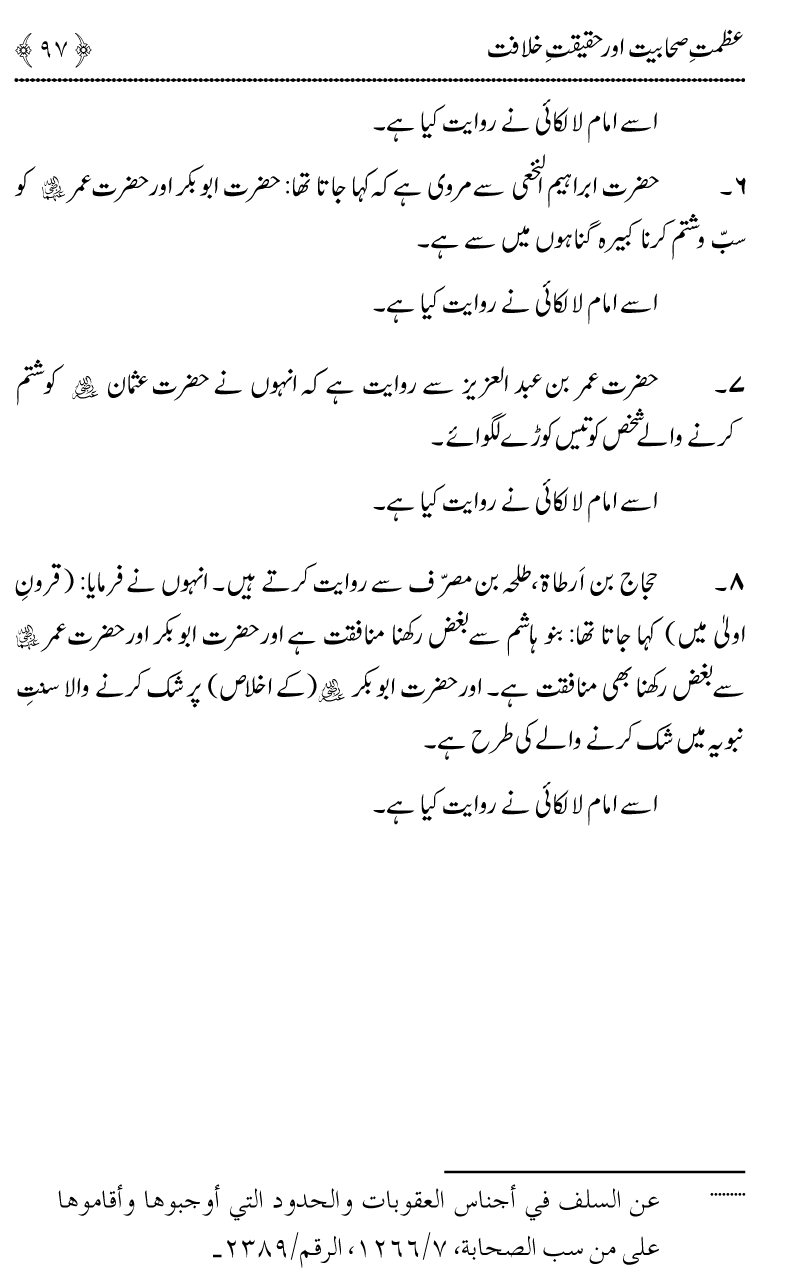 عظمتِ صحابیت اور حقیقتِ خلافت ﴿۹۷﴾
اسے امام لالکائی نے روایت کیا ہے۔
۶۔ حضرت ابراہیم النخعی سے مروی ہے کہ کہا جاتا تھا: حضرت ابو بکر اور حضرت عمر رضی اللہ عنہما کو
سبّ و شتم کرنا کبیرہ گناہوں میں سے ہے۔
اسے امام لالکائی نے روایت کیا ہے۔
۷۔ حضرت عمر بن عبد العزیز سے روایت ہے کہ انہوں نے حضرت عثمان رضی اللہ عنہ کو شتم
کرنے والے شخص کو تیس کوڑے لگوائے۔
اسے امام لالکائی نے روایت کیا ہے۔
۸۔ حجاج بن اَرطاۃ، طلحہ بن مصرّف سے روایت کرتے ہیں۔ انہوں نے فرمایا: (قرونِ
اولیٰ میں) کہا جاتا تھا: بنو ہاشم سے بغض رکھنا منافقت ہے اور حضرت ابو بکر اور حضرت عمر رضی اللہ عنہما
سے بغض رکھنا بھی منافقت ہے۔ اور حضرت ابو بکر رضی اللہ عنہ (کے اخلاص) پر شک کرنے والا سنتِ
نبویہ میں شک کرنے والے کی طرح ہے۔
اسے امام لالکائی نے روایت کیا ہے۔
......... عن السلف في أجناس العقوبات والحدود التي أوجبوها وأقاموها
على من سب الصحابة، ٧/١٢٦٦، الرقم/٢٣٨٩ـ